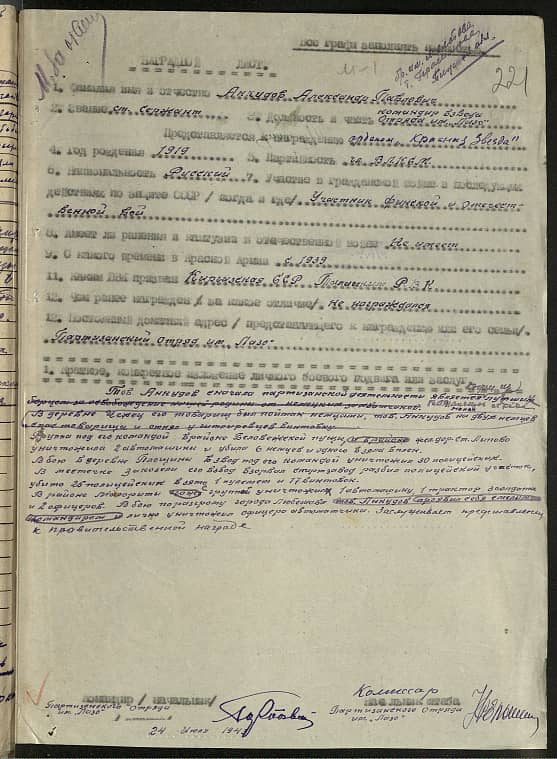 Все графы заполнять
М-1
221
НАГРАДНОЙ ЛИСТ.
1. Фамилия имя и отчество Анкудов Александр Павлович
2. Звание ст. сержант 3. Должность и часть командир взвода
Отряда им. "Лазо"
Представляется к награждению орденом "Красная Звезда"
4. Год рождения 1919 5. Партийность чл. ВЛКСМ
6. Национальность Русский 7. Участие в гражданской войне и последующих
действиях по защите СССР / когда и где/ Участник Финской и Отечест-
венной вой
8. Имеет ли ранения и контузии в отечественной войне Не имеет
9. С какого времени в Красной Армии с 1939
11. Каким РВК призван Киргизская ССР Р.В.К.
12. Чем ранее награжден / за какие отличия/. Не награждался
12. Постоянный домашний адрес / представляемого к награждению или его семьи/.
Партизанский Отряд им. "Лазо"
1. Краткое, конкретное изложение личного боевого подвига или заслуг
Тов. Анкудов с начала партизанской деятельности является лучшим
В деревне его товарищ был пойман немцами, тов. Анкудов на двух немцев
спас товарища и отнял у гитлеровцев винтовку.
Группа под его командой в районе Беловежской пущи и в районе желдор. ст. Липово
уничтожила 2 автомашины и убила 6 немцев и одного взяла в плен.
В бою в деревне взвод под его командой уничтожил 30 полицейских.
В местечке его взвод взорвал спиртзавод разбил полицейский участок,
убито 26 полицейских взята 1 пулемет и 17 винтовок.
В районе группой уничтожил 1 автомашину, 1 трактор 2 солдата
и 2 офицеров. В бою по разгрому города Любешова тов. Анкудов проявил себя смелым
командиром и лично уничтожил офицера автоматчика. Заслуживает представления
к правительственной награде
Командир / начальник/
Партизанского Отряда
им. "Лазо"
Комиссар
Начальник штаба
Партизанского Отряда
им. "Лазо"
24 Июля 194